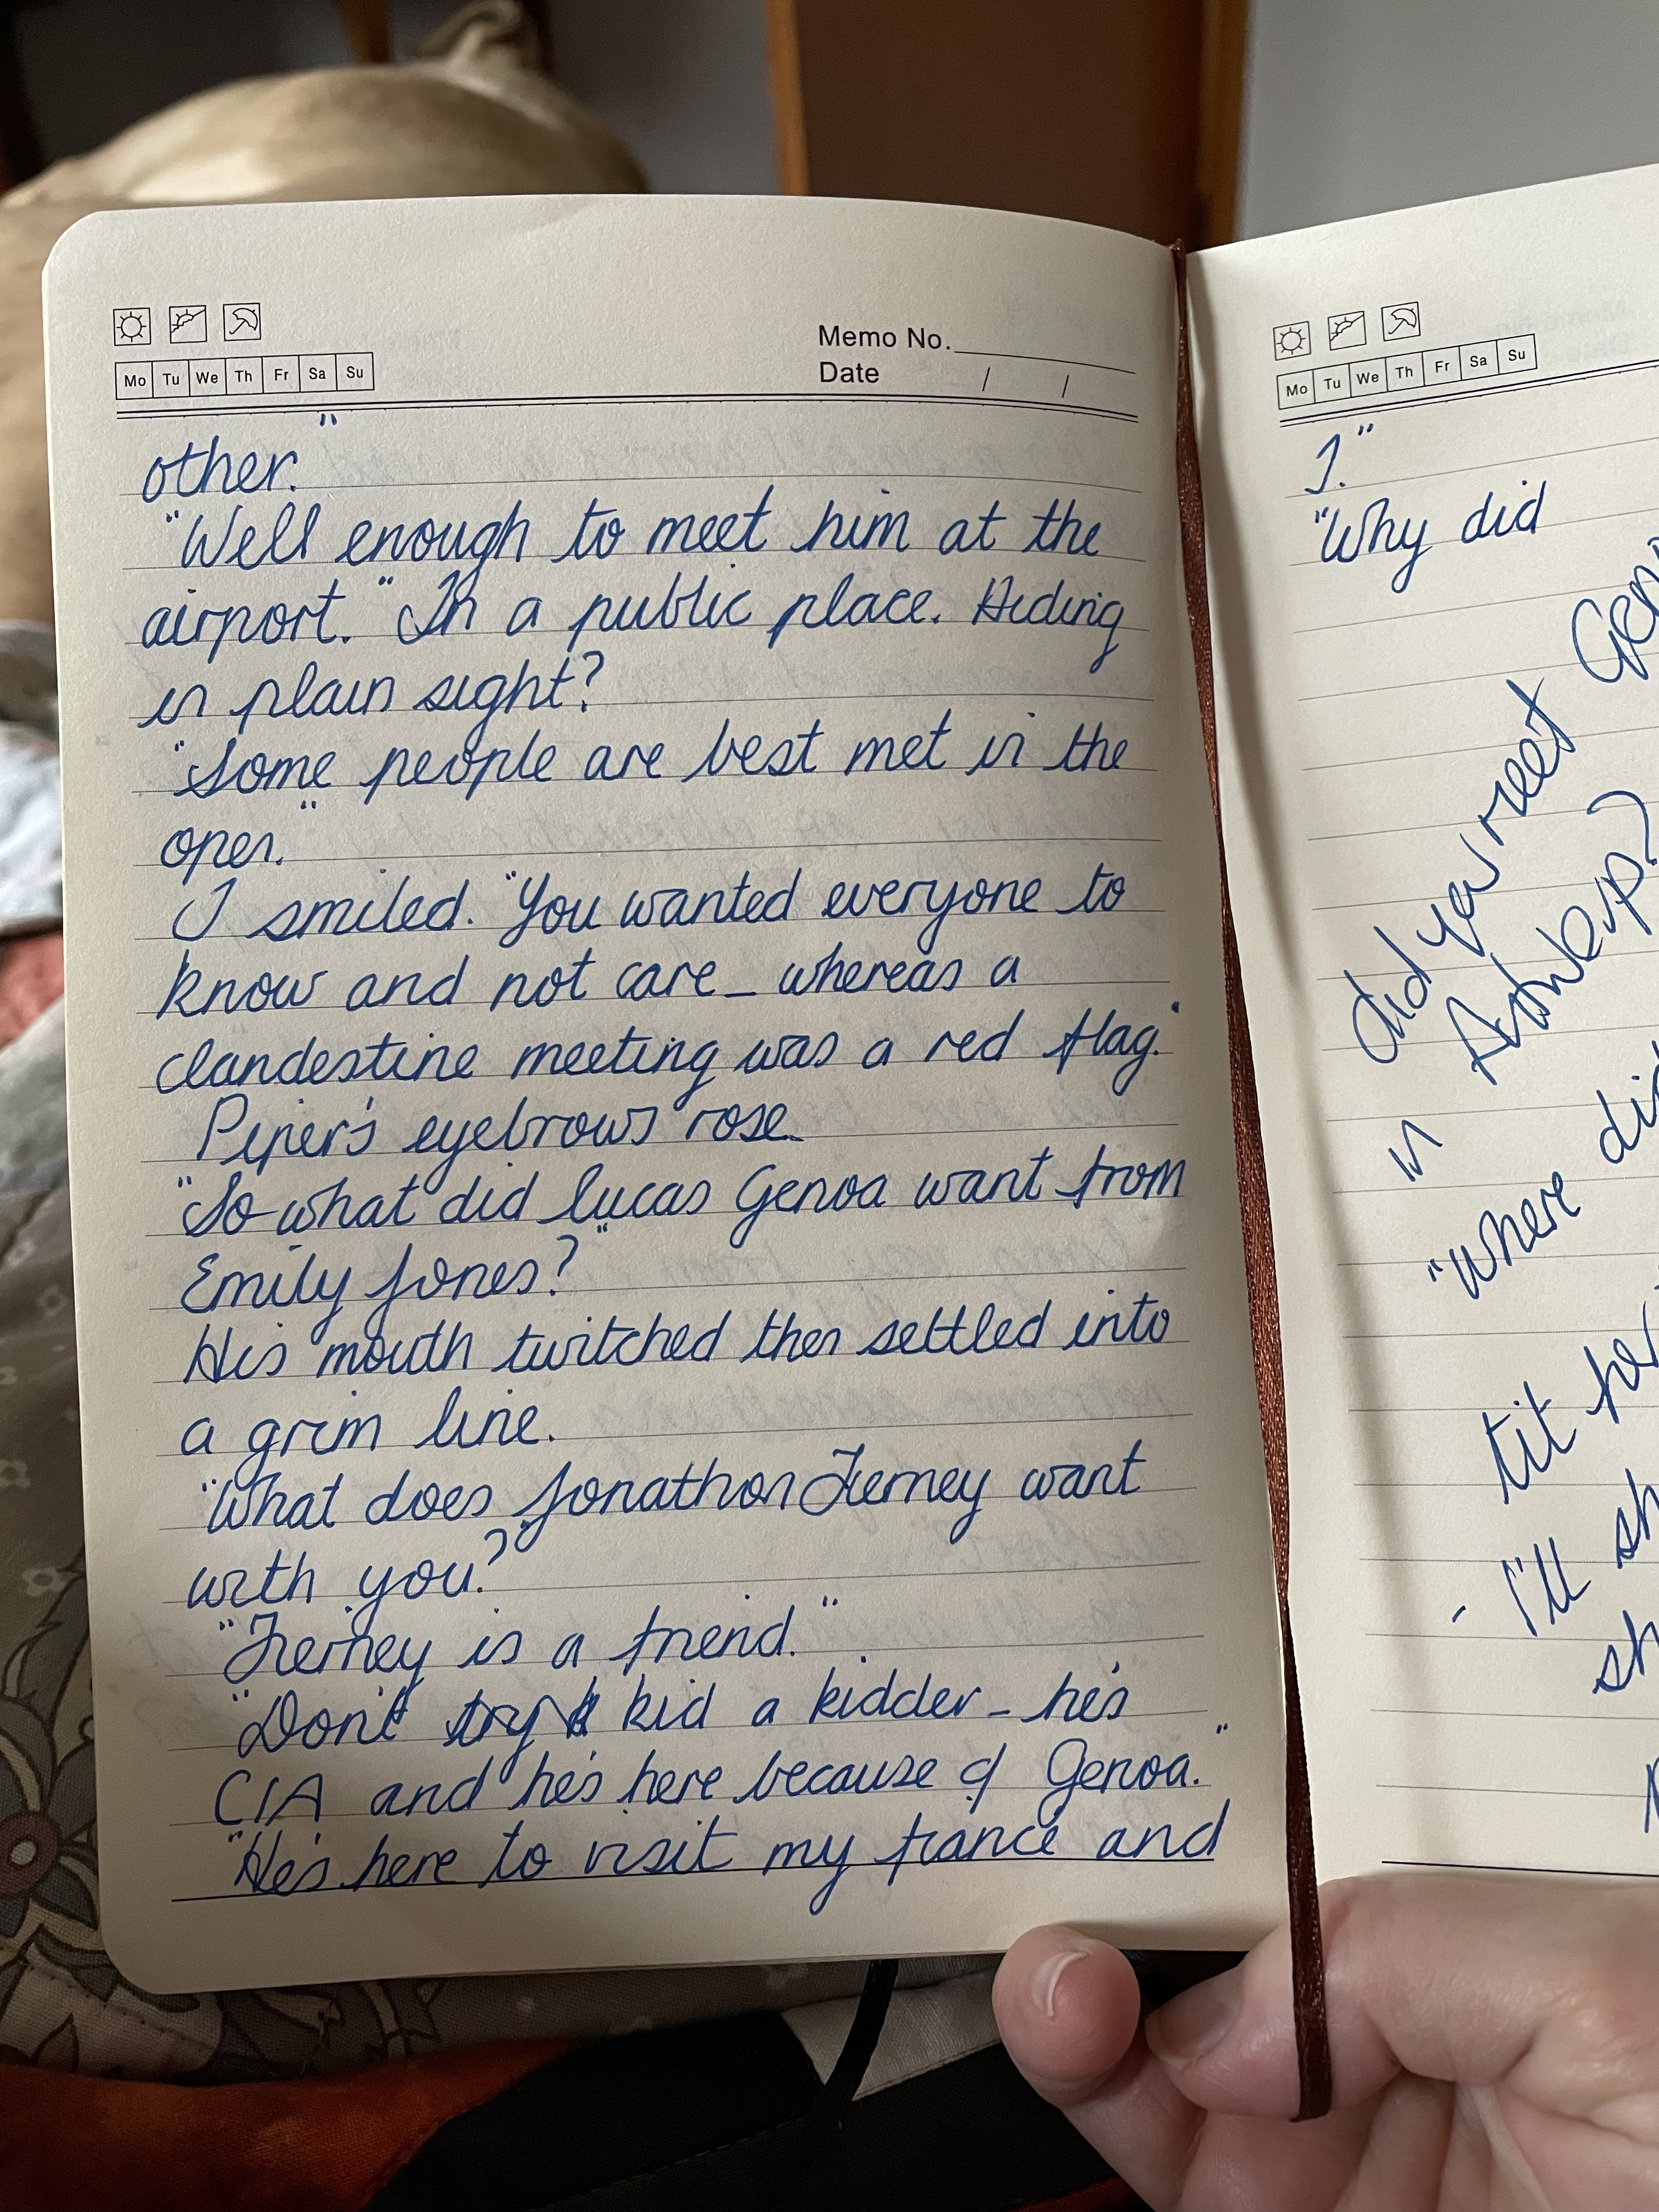 Memo No.
Mo Tu We Th Fr Sa Su
Date / /
other."
"Well enough to meet him at the
airport." In a public place. Hiding
in plain sight?
"Some people are best met in the
open."
I smiled. "You wanted everyone to
know and not care - whereas a
clandestine meeting was a red flag."
Piper's eyebrows rose.
"So what did Lucas Genoa want from
Emily Jones?"
His mouth twitched then settled into
a grim line.
"What does Jonathon Tierney want
with you?"
"Tierney is a friend."
"Don't try kid a kidder - he's
CIA and he's here because of Genoa."
"He's here to visit my fiancé and
Mo Tu We Th Fr Sa Su
I."
"Why did
did you meet
in Antwerp?
"where
tit
- I'll